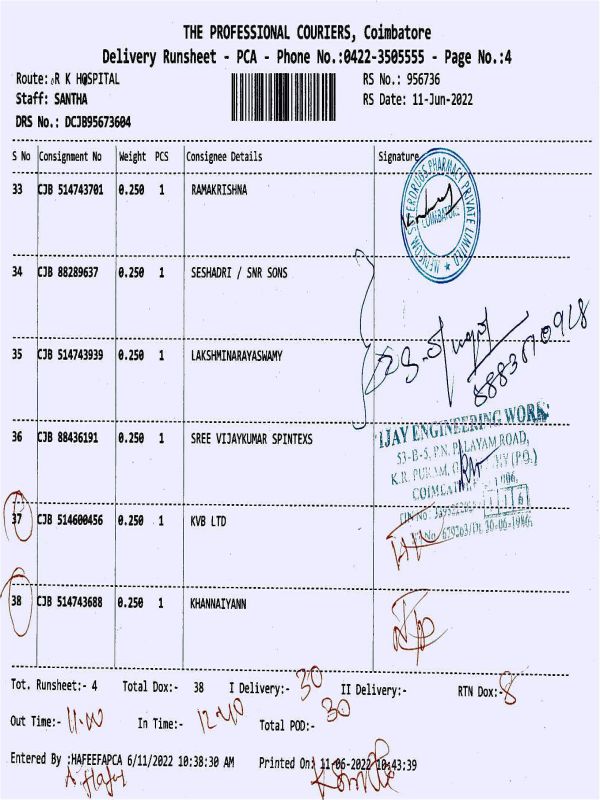 THE PROFESSIONAL COURIERS, Coimbatore
Delivery Runsheet - PCA - Phone No.:0422-3505555 - Page No.:4
Route: R K HOSPITAL RS No.: 956736
Staff: SANTHA RS Date: 11-Jun-2022
DRS No.: DCJB95673604
S No Consignment No Weight PCS Consignee Details Signature
33 CJB 514743701 0.250 1 RAMAKRISHNA
PHARMACY PRIVATE LIMITED
COIMBATORE
34 CJB 88289637 0.250 1 SESHADRI / SNR SONS
35 CJB 514743939 0.250 1 LAKSHMINARAYASWAMY
36 CJB 88436191 0.250 1 SREE VIJAYKUMAR SPINTEXS
IJAY ENGINEERING WORK
53-B-5, P.N. PALAYAM ROAD,
K.R. PURAM, (PO.)
37 CJB 514600456 0.250 1 KVB LTD
38 CJB 514743688 0.250 1 KHANNAIYANN
Tot. Runsheet:- 4 Total Dox:- 38 I Delivery:- 30 II Delivery:- RTN Dox:- 8
Out Time:- 11.00 In Time:- 12.40 Total POD:- 30
Entered By :HAFEEFAPCA 6/11/2022 10:38:30 AM Printed On: 11-06-2022 10:43:39